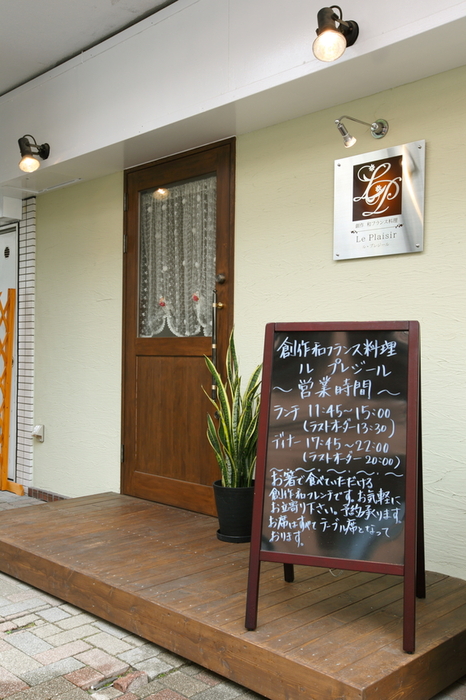 LP
創作 和フランス料理
Le Plaisir
ル・プレジール
創作和フランス料理
ル プレジール
～営業時間～
ランチ 11:45～15:00
(ラストオーダー13:30)
ディナー 17:45～22:00
(ラストオーダー 20:00)
お箸で食べていただける
創作和フレンチです。お気軽に
お立寄り下さい。予約承ります。
お席はすべてテーブル席となって
おります。